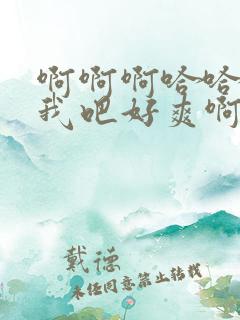 啊啊啊哈哈
我吧好爽啊
戴德
未经同意禁止转载